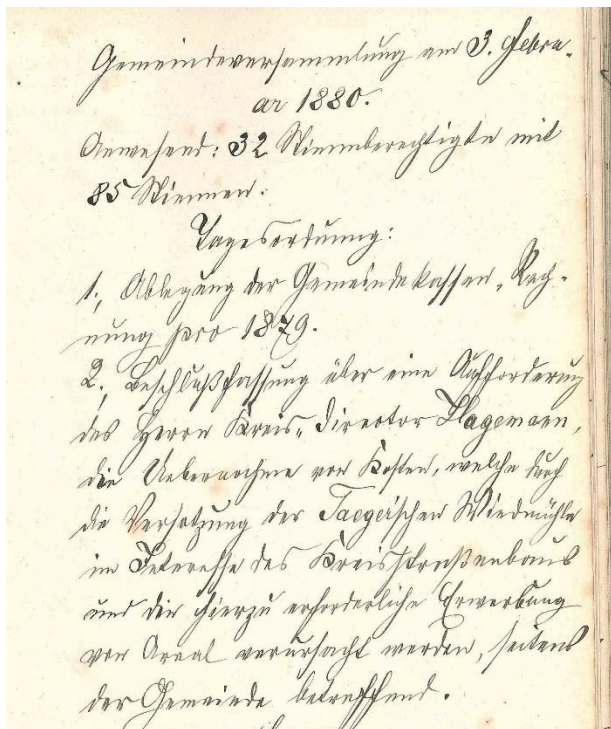 Gemeindeversammlung am 3. Febru-
ar 1880.
Anwesend: 32 Stimmberechtigte mit
85 Stimmen.
Tagesordnung:
1., Ablegung der Gemeindekassen-Rech-
nung pro 1879.
2., Beschlußfassung über eine Aufforderung
des Herrn Kreis-Director Hagemann,
die Uebernahme von Kosten, welche durch
die Versetzung der Jaeger'schen Windmühle
im Interesse des Kreisstraßenbaus
und die hierzu erforderliche Erwerbung
von Areal verursacht werden, seitens
der Gemeinde betreffend.